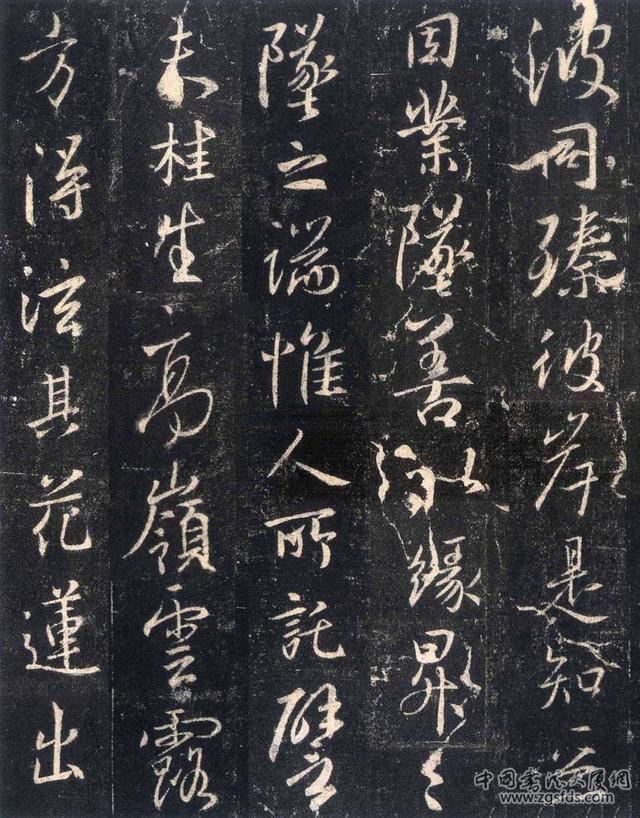 波同臻彼岸是知惡
因業墜善以緣昇〻
墜之端惟人所託譬
夫桂生高嶺雲露
方得泫其花蓮出
中国書法大厦网
www.zgsfds.com